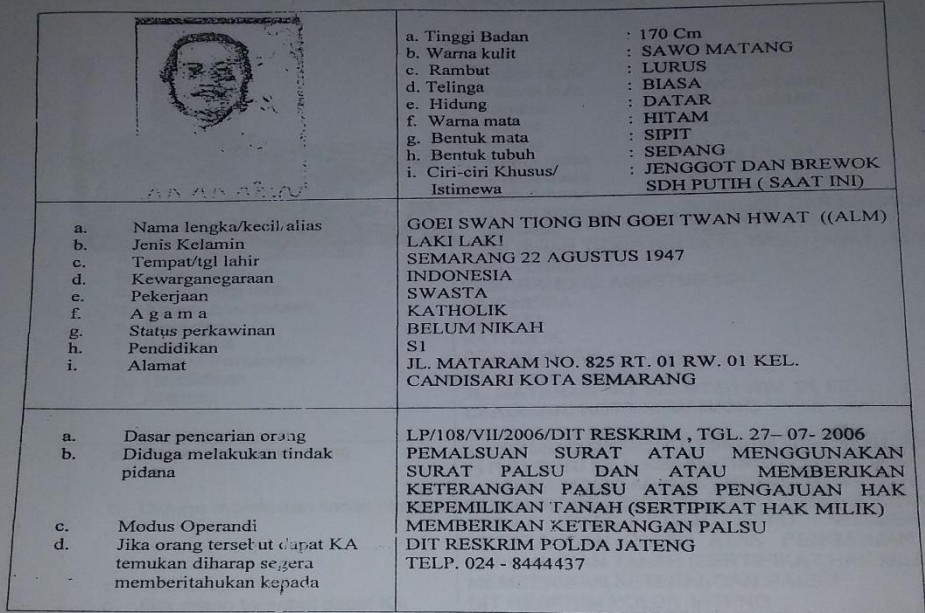 a. Tinggi Badan : 170 Cm
b. Warna kulit : SAWO MATANG
c. Rambut : LURUS
d. Telinga : BIASA
e. Hidung : DATAR
f. Warna mata : HITAM
g. Bentuk mata : SIPIT
h. Bentuk tubuh : SEDANG
i. Ciri-ciri Khusus/ : JENGGOT DAN BREWOK
Istimewa SDH PUTIH ( SAAT INI)
a. Nama lengka/kecil/alias GOEI SWAN TIONG BIN GOEI TWAN HWAT ((ALM)
b. Jenis Kelamin LAKI LAKI
c. Tempat/tgl lahir SEMARANG 22 AGUSTUS 1947
d. Kewarganegaraan INDONESIA
e. Pekerjaan SWASTA
f. A g a m a KATHOLIK
g. Status perkawinan BELUM NIKAH
h. Pendidikan S1
i. Alamat JL. MATARAM NO. 825 RT. 01 RW. 01 KEL.
CANDISARI KOTA SEMARANG
a. Dasar pencarian orang LP/108/VII/2006/DIT RESKRIM , TGL. 27– 07- 2006
b. Diduga melakukan tindak PEMALSUAN SURAT ATAU MENGGUNAKAN
pidana SURAT PALSU DAN ATAU MEMBERIKAN
KETERANGAN PALSU ATAS PENGAJUAN HAK
KEPEMILIKAN TANAH (SERTIPIKAT HAK MILIK)
c. Modus Operandi MEMBERIKAN KETERANGAN PALSU
d. Jika orang tersebut dapat KA DIT RESKRIM POLDA JATENG
temukan diharap segera TELP. 024 - 8444437
memberitahukan kepada